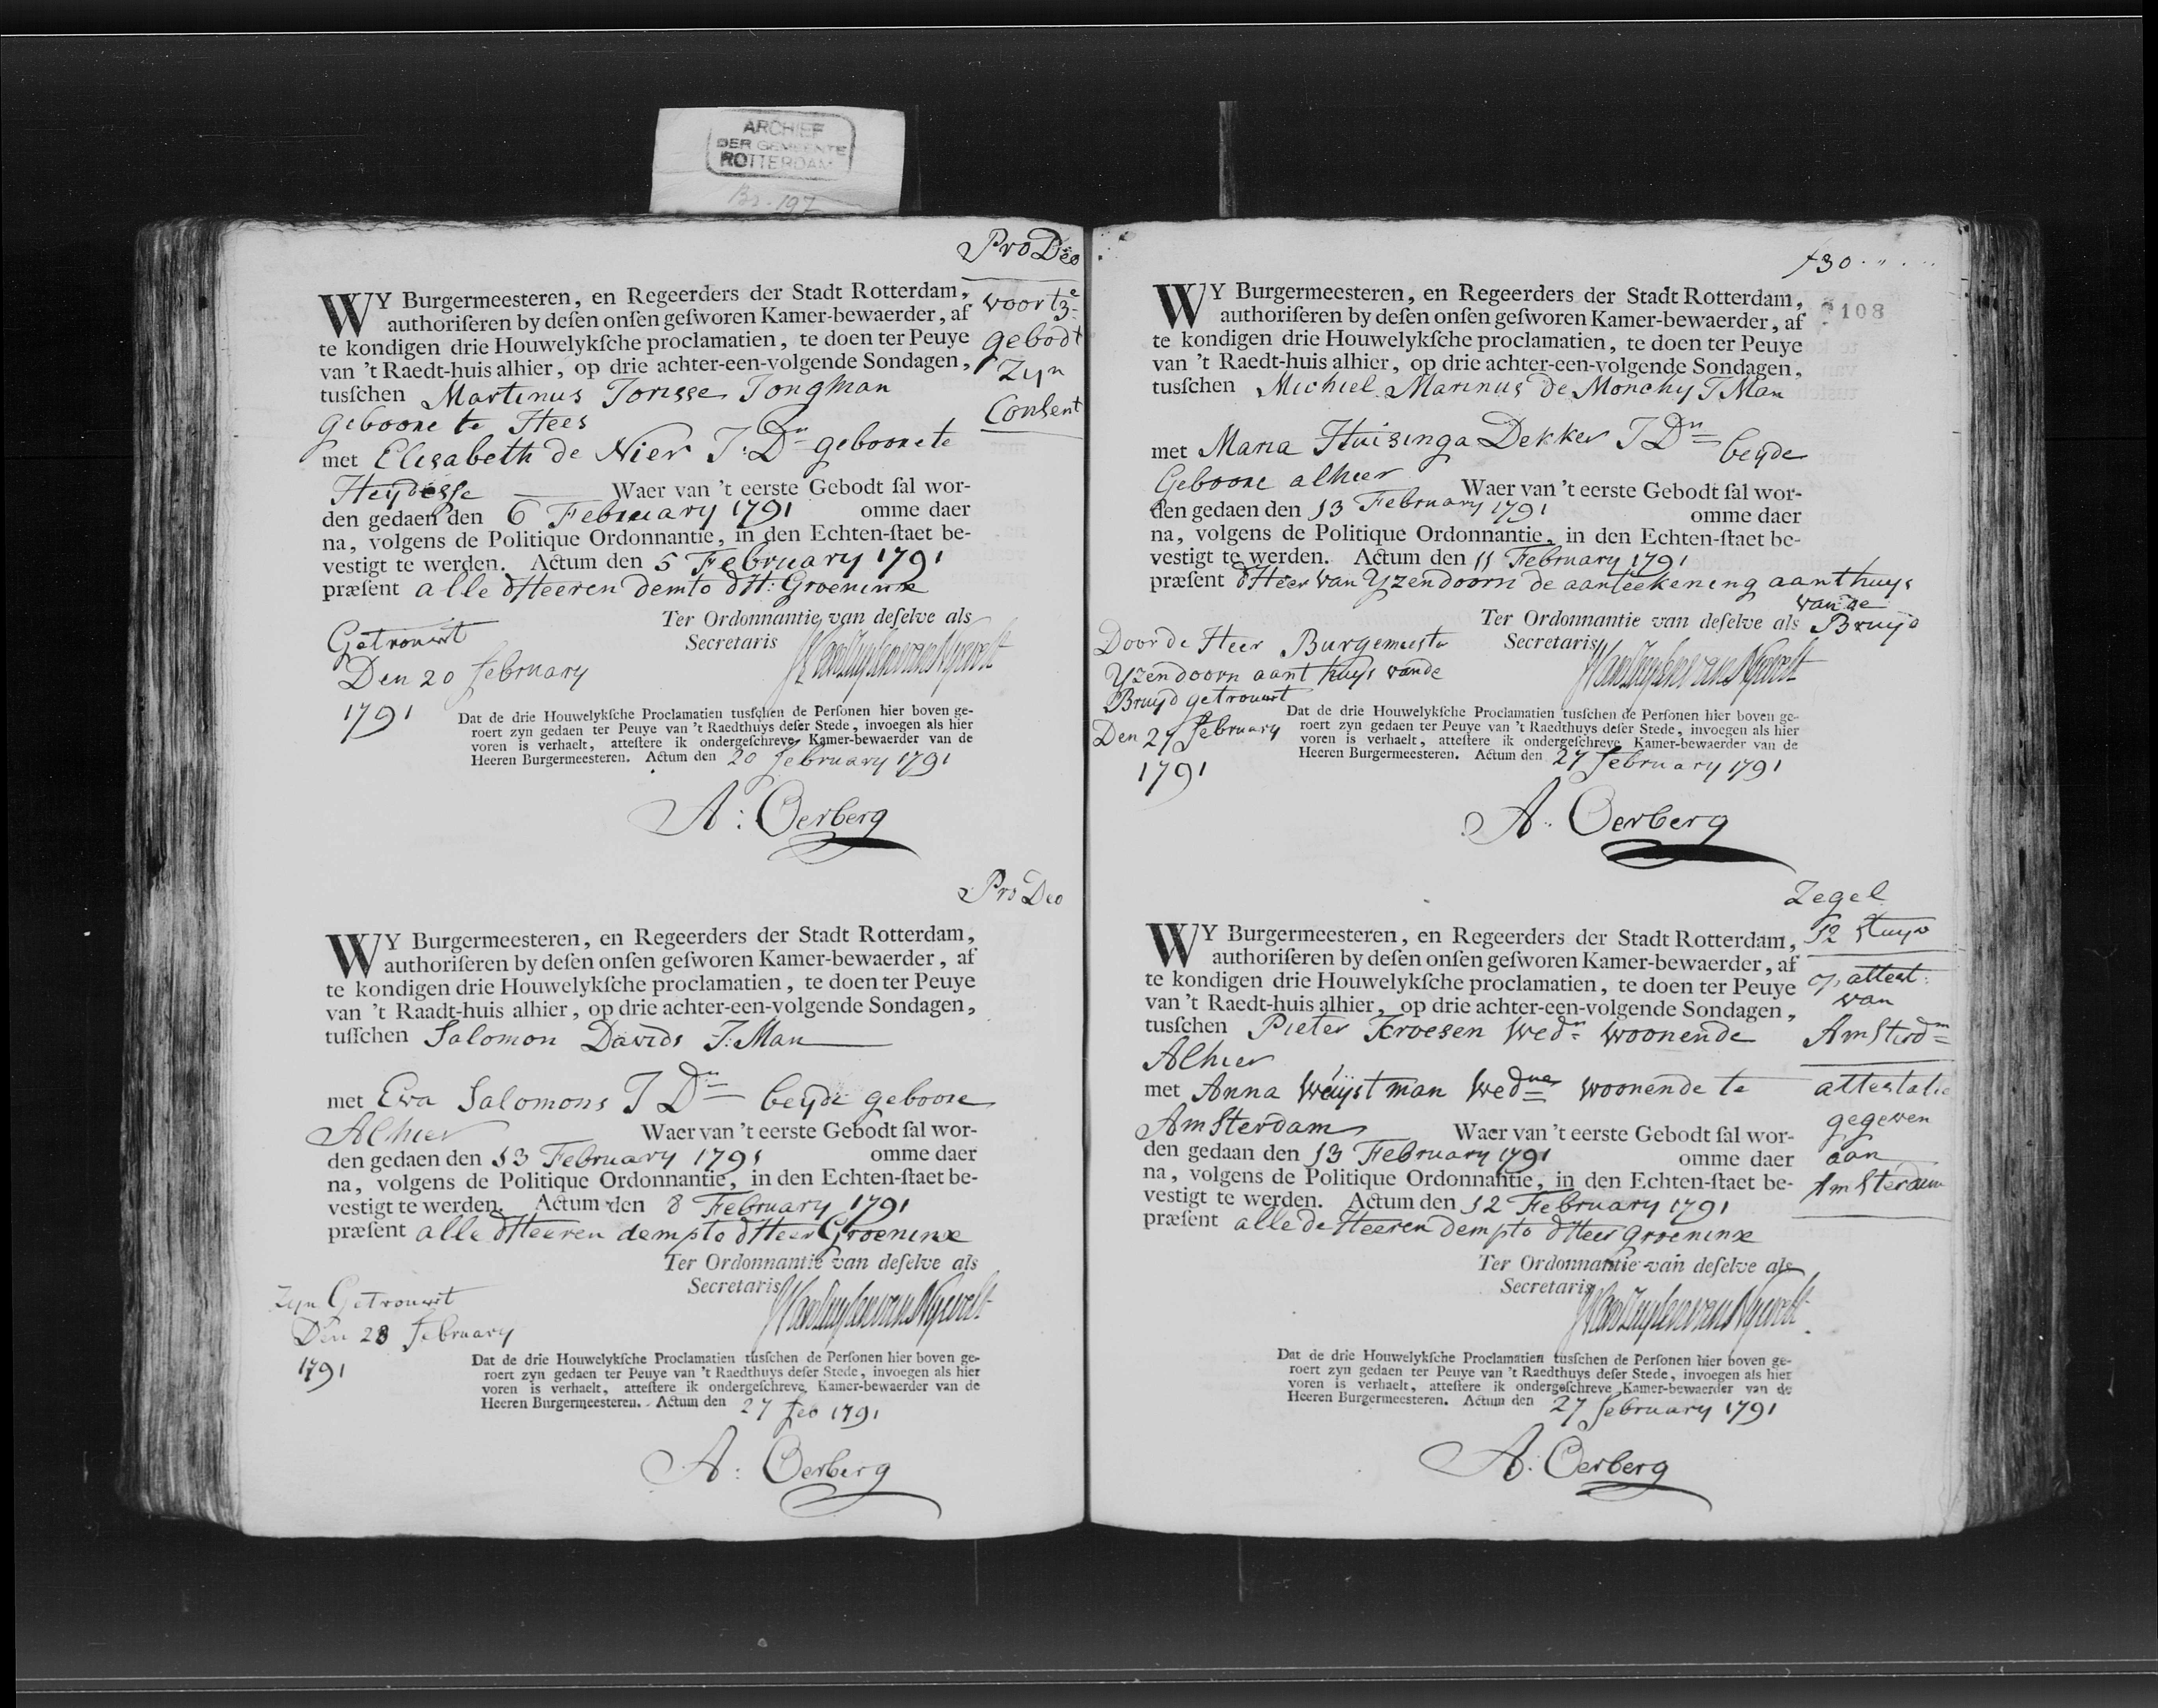 ARCHIEF
DER GEMEENTE
ROTTERDAM
Pro Deo
WY Burgermeesteren, en Regeerders der Stadt Rotterdam,
authoriseren by desen onsen gesworen Kamer-bewaerder, af
te kondigen drie Houwelyksche proclamatien, te doen ter Peuye
van 't Raedt-huis alhier, op drie achter-een-volgende Sondagen,
tusschen Martinus Jorisse Jongman
geboore te Hees
met Elisabeth de Nier J: Dn geboore te
Heydesse Waer van 't eerste Gebodt sal wor-
den gedaen den 6 February 1791 omme daer
na, volgens de Politique Ordonnantie, in den Echten-staet be-
vestigt te werden. Actum den 5 February 1791
præsent alle d'Heeren demto d'H: Groeninx
Ter Ordonnantie van deselve als
Secretaris
voort 3e
gebodt
Zyn
Consent
Getrouwt
Den 20 february
1791
Dat de drie Houwelyksche Proclamatien tusschen de Personen hier boven ge-
roert zyn gedaen ter Peuye van 't Raedthuys deser Stede, invoegen als hier
voren is verhaelt, attestere ik ondergeschreve Kamer-bewaerder van de
Heeren Burgermeesteren. Actum den 20 february 1791
A: Oerberg
Pro Deo
WY Burgermeesteren, en Regeerders der Stadt Rotterdam,
authoriseren by desen onsen gesworen Kamer-bewaerder, af
te kondigen drie Houwelyksche proclamatien, te doen ter Peuye
van 't Raadt-huis alhier, op drie achter-een-volgende Sondagen,
tusschen Salomon Davids J: Man
met Eva Salomons J Dn beyde geboore
Alhier Waer van 't eerste Gebodt sal wor-
den gedaen den 13 February 1791 omme daer
na, volgens de Politique Ordonnantie, in den Echten-staet be-
vestigt te werden. Actum den 8 February 1791
præsent alle d'Heeren dempto d'Heer Groeninx
Ter Ordonnantie van deselve als
Secretaris
Zyn Getrouwt
Den 28 february
1791
Dat de drie Houwelyksche Proclamatien tusschen de Personen hier boven ge-
roert zyn gedaen ter Peuye van 't Raedthuys deser Stede, invoegen als hier
voren is verhaelt, attestere ik ondergeschreve Kamer-bewaerder van de
Heeren Burgermeesteren. Actum den 27 feb 1791
A: Oerberg
f 30
108
WY Burgermeesteren, en Regeerders der Stadt Rotterdam,
authoriseren by desen onsen gesworen Kamer-bewaerder, af
te kondigen drie Houwelyksche proclamatien, te doen ter Peuye
van 't Raedt-huis alhier, op drie achter-een-volgende Sondagen,
tusschen Michiel Marinus de Monchy J Man
met Maria Huisinga Dekker J Dn beyde
Geboore alhier Waer van 't eerste Gebodt sal wor-
den gedaen den 13 February 1791 omme daer
na, volgens de Politique Ordonnantie, in den Echten-staet be-
vestigt te werden. Actum den 11 February 1791
præsent d'Heer van Yzendoorn de aanteekening aant huys
van de
Bruyd
Ter Ordonnantie van deselve als
Secretaris
Door de Heer Burgemeestr
Yzendoorn aant huys vande
Bruyd getrouwt
Den 27 february
1791
Dat de drie Houwelyksche Proclamatien tusschen de Personen hier boven ge-
roert zyn gedaen ter Peuye van 't Raedthuys deser Stede, invoegen als hier
voren is verhaelt, attestere ik ondergeschreve Kamer-bewaerder van de
Heeren Burgermeesteren. Actum den 27 february 1791
A. Oerberg
Zegel
12 stuyv
WY Burgermeesteren, en Regeerders der Stadt Rotterdam,
authoriseren by desen onsen gesworen Kamer-bewaerder, af
te kondigen drie Houwelyksche proclamatien, te doen ter Peuye
van 't Raedt-huis alhier, op drie achter-een-volgende Sondagen,
tusschen Pieter Kroesen Wedr woonende
Alhier
met Anna Weijstman Wedue woonende te
Amsterdam Waer van 't eerste Gebodt sal wor-
den gedaan den 13 February 1791 omme daer
na, volgens de Politique Ordonnantie, in den Echten-staet be-
vestigt te werden. Actum den 12 February 1791
præsent alle de Heeren dempto d'Heer Groeninx
Ter Ordonnantie van deselve als
Secretaris
op attest:
van
Amsterdm
attestatie
gegeven
aan
Amsterdam
Dat de drie Houwelyksche Proclamatien tusschen de Personen hier boven ge-
roert zyn gedaen ter Peuye van 't Raedthuys deser Stede, invoegen als hier
voren is verhaelt, attestere ik ondergeschreve Kamer-bewaerder van de
Heeren Burgermeesteren. Actum den 27 february 1791
A: Oerberg